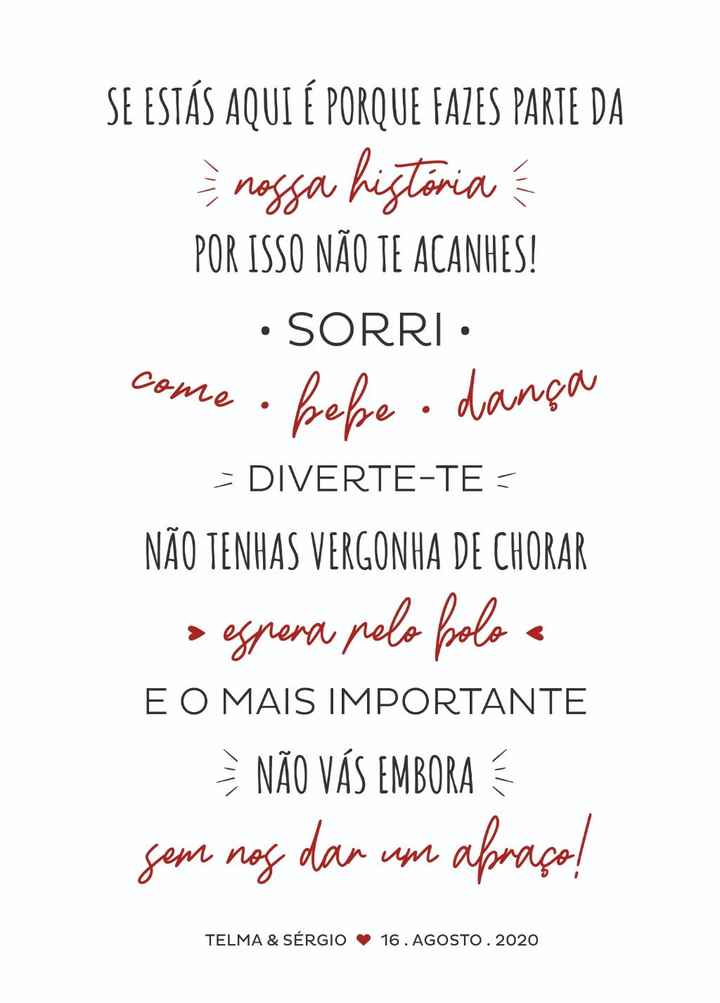 SE ESTÁS AQUI É PORQUE FAZES PARTE DA
nossa história
POR ISSO NÃO TE ACANHES!
• SORRI •
come • bebe • dança
DIVERTE-TE
NÃO TENHAS VERGONHA DE CHORAR
espera pelo bolo
E O MAIS IMPORTANTE
NÃO VÁS EMBORA
sem nos dar um abraço!
TELMA & SÉRGIO ♥ 16 . AGOSTO . 2020